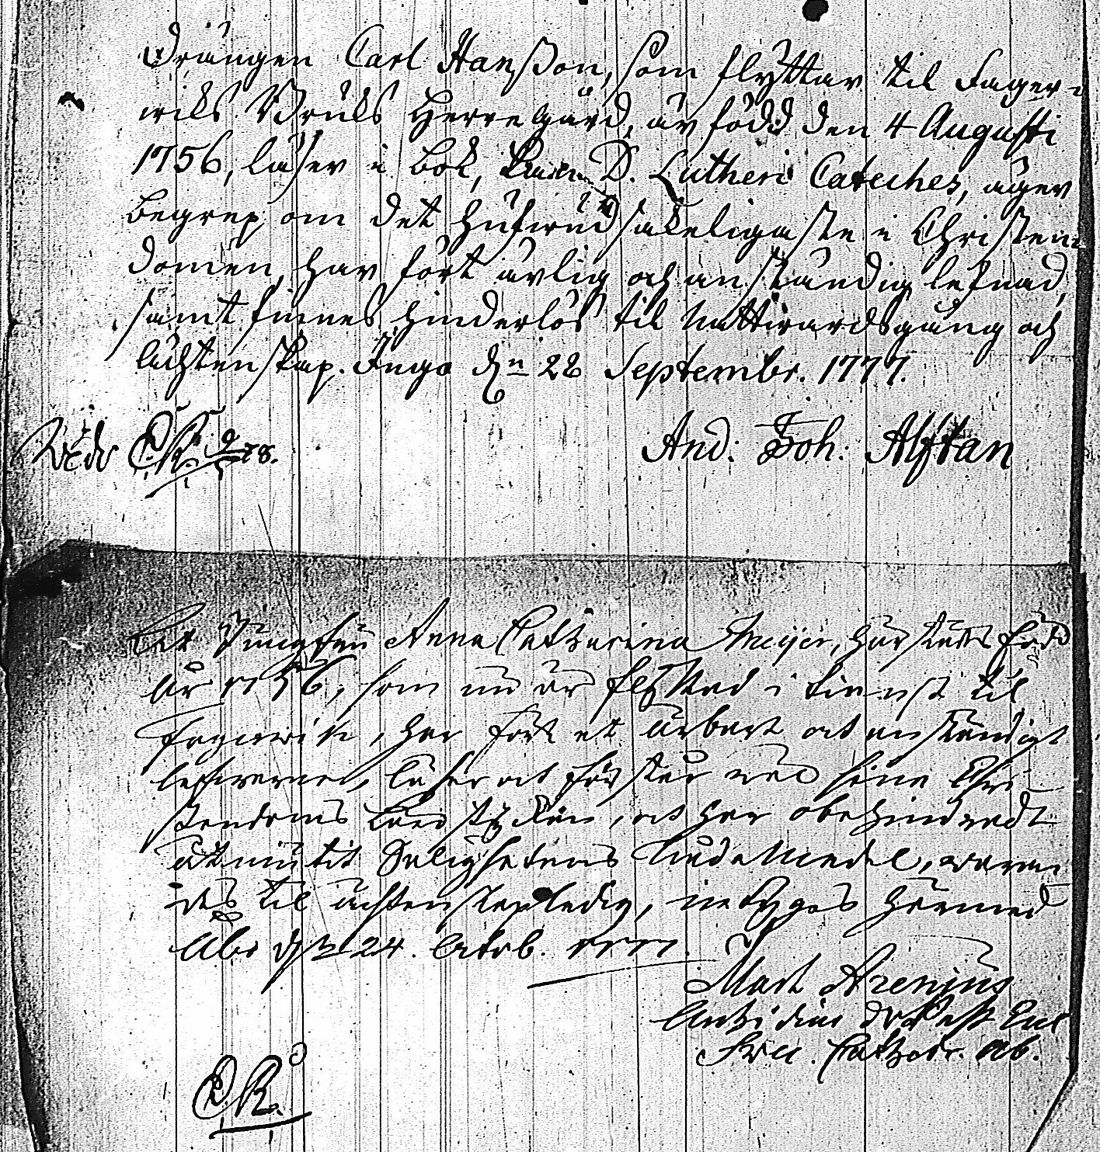 Drängen Carl Hanßon, som flyttar til Fager-
wiks Bruks Herregård, är född den 4 Augusti
1756, läser i bok, D. Lutheri Cateches, äger
begrep om det hufwudsakeligaste i Christen-
domen, har fört ärlig och anständig lefnad,
samt finnes hinderlös til Nattwardsgång och
ächtenskap. Ingo d:n 28 Septembr. 1777.
And: Joh: Alftan
C.R.
At Jungfru Anna Catharina Meijer, härstädes född
år 1756, som nu är flyttad i tienst til
Fagerwik, har fört et ärbart och anständigt
lefwerne, läser och förstår wäl sina Chri-
stendoms stycken, och har obehindradt
åtniutit Salighetens Nådemedel, waran-
des til ächtenskap ledig, intygas härmed
Åbo d:n 24. Octob. 1777.
Mart Arenius
C.R.